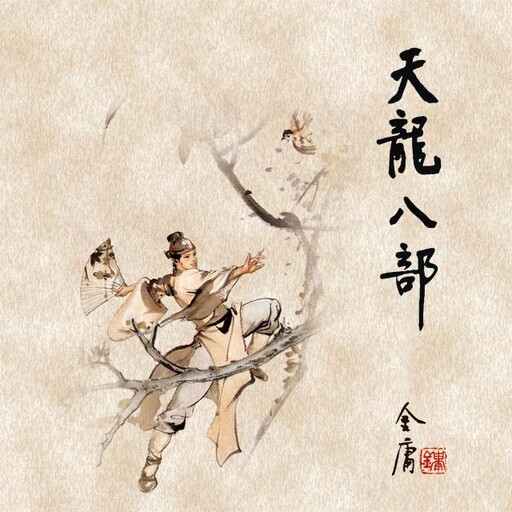 天龍八部
金庸
鏞